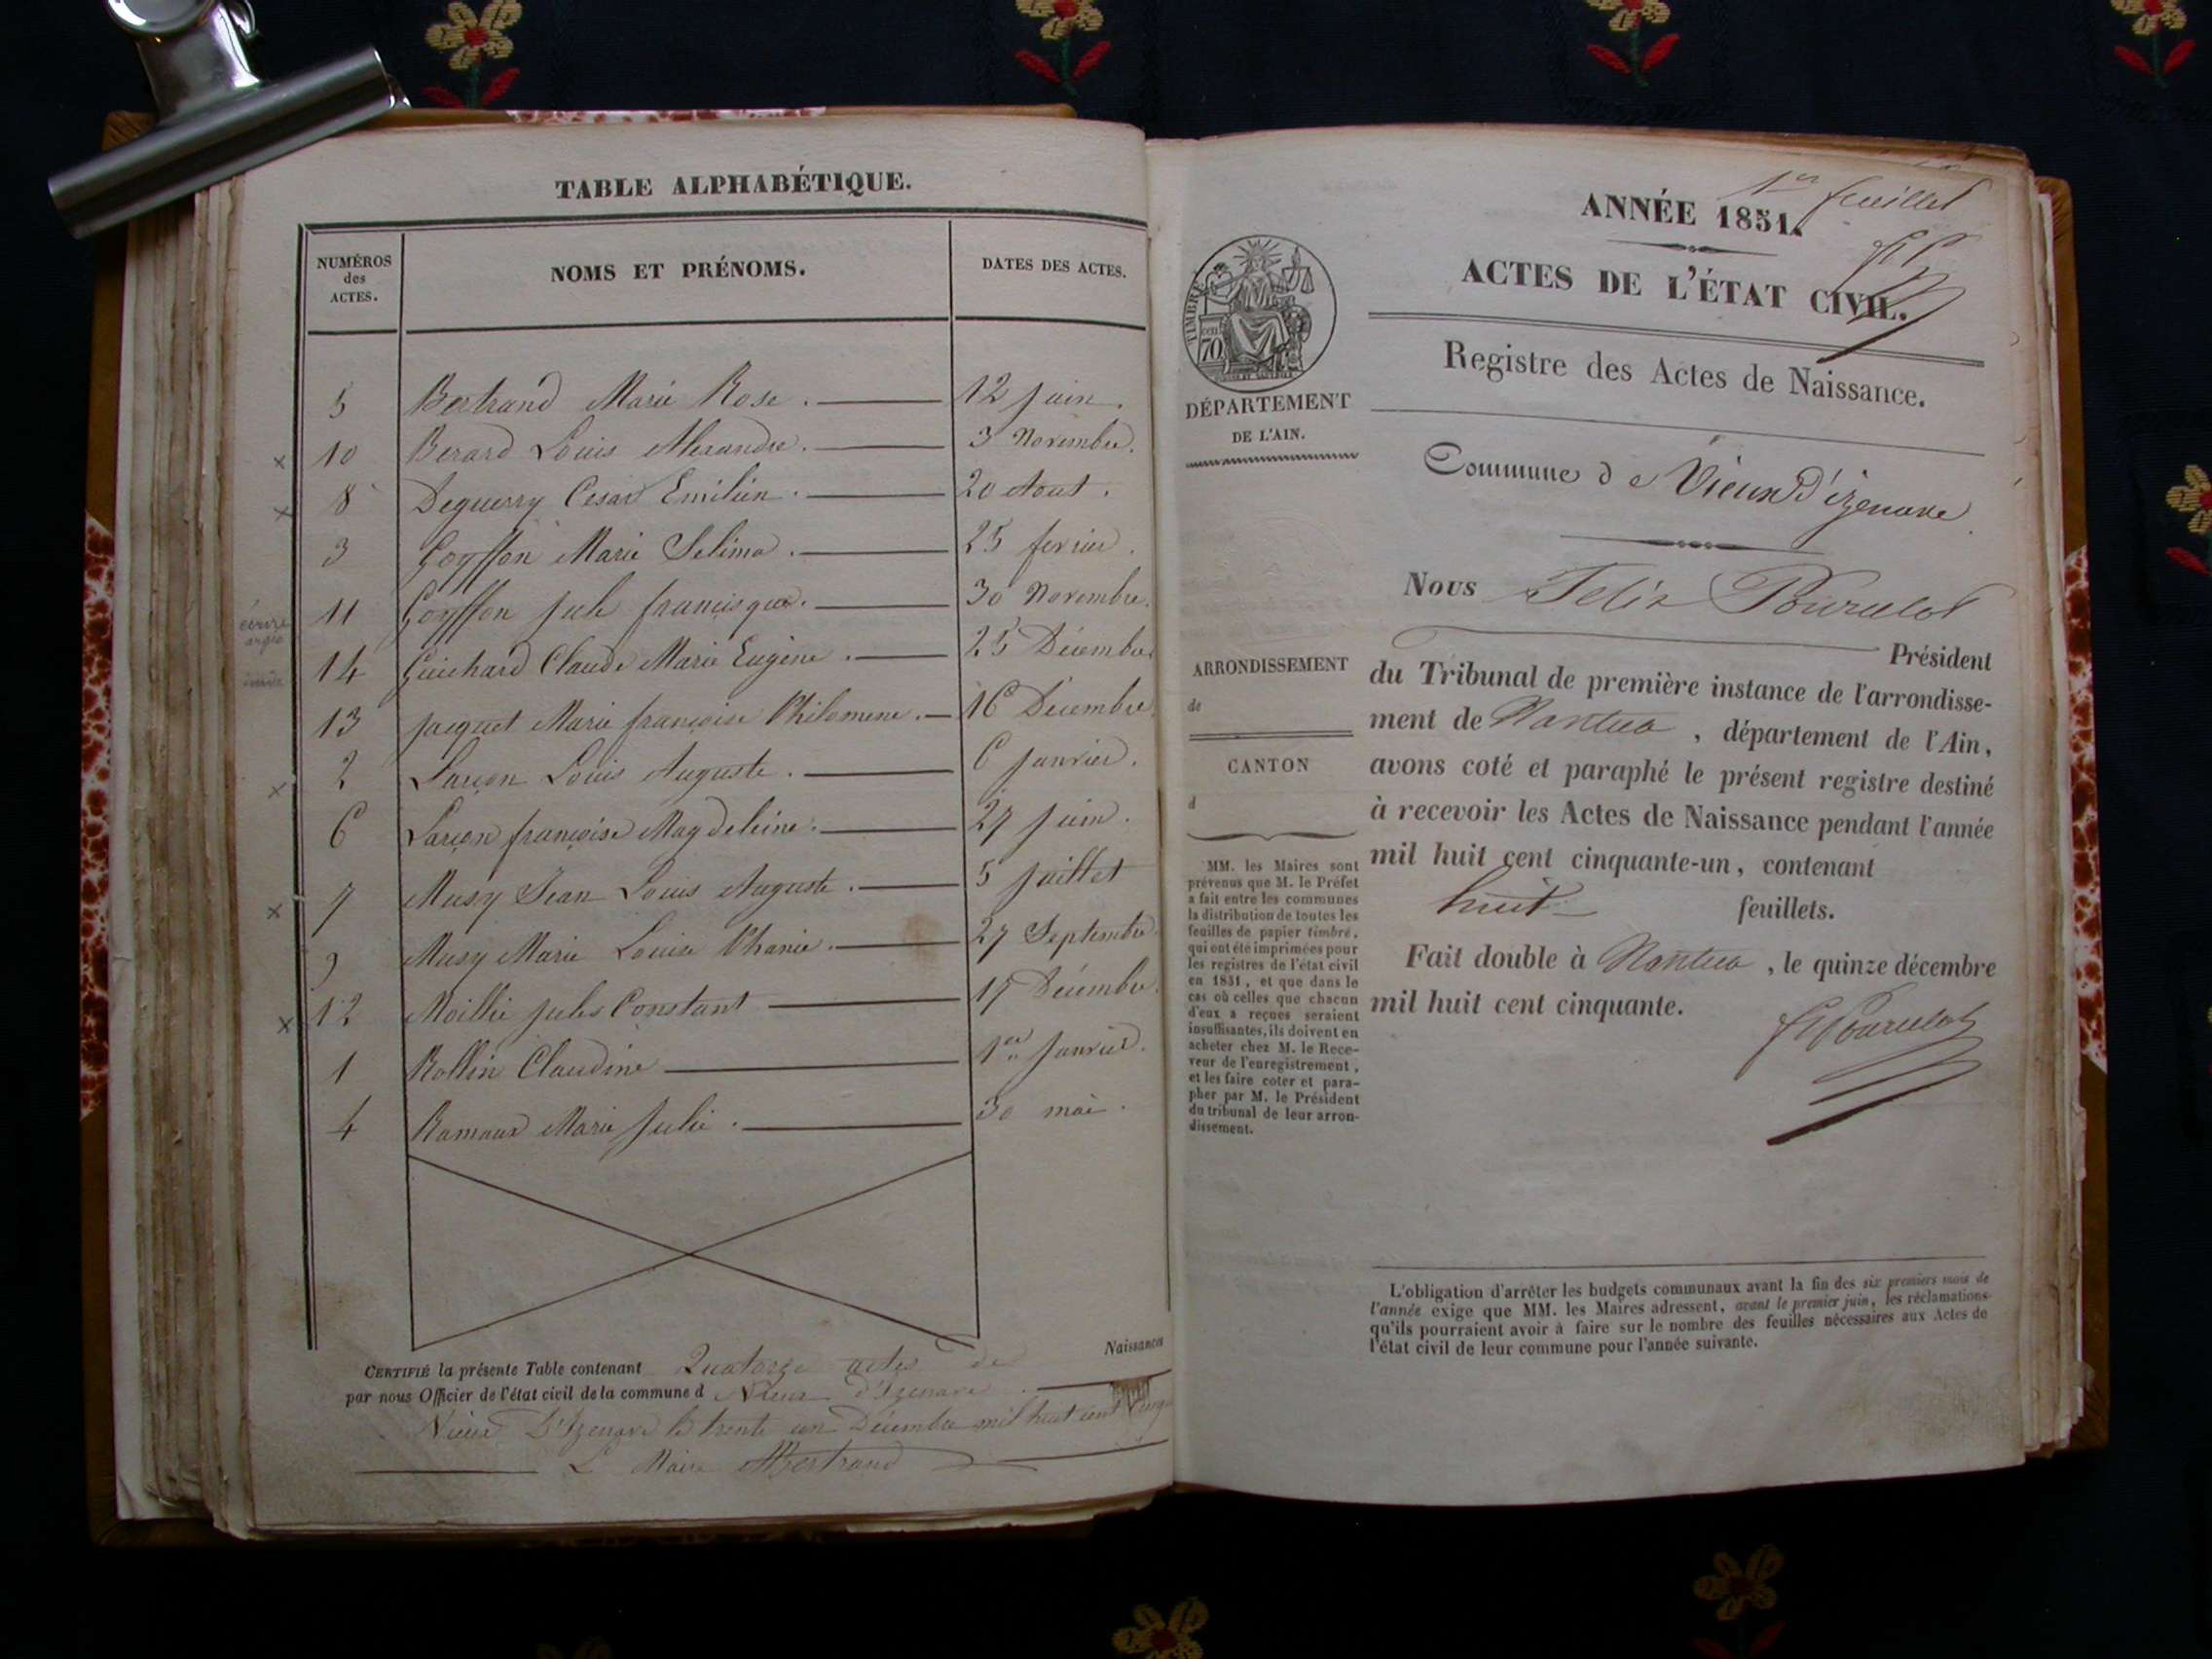 TABLE ALPHABÉTIQUE.
NUMÉROS des ACTES. NOMS ET PRÉNOMS. DATES DES ACTES.
5 Bertrand Marie Rose. 12 juin.
10 Berard Louis Alexandre. 3 Novembre.
8 Deguerry Cesar Emilien. 20 Aout.
3 Goyffon Marie Selima. 25 fevrier.
11 Goyffon Jule francisque. 30 Novembre.
14 Guichard Claude Marie Eugene. 25 Décembre
13 jacquet Marie françoise Philomene. 16 Décembre.
2 Larçon Louis Auguste. 6 janvier.
6 Larçon françoise Magdeleine. 27 juin.
7 Musy Jean Louis Auguste. 5 juillet
9 Musy Marie Louise Phanie. 27 Septembre.
12 Moillie jules Constant 17 Décembre.
1 Rollin Claudine 1er Janvier.
4 Ramaux Marie Julie. 30 mai.
CERTIFIÉ la présente Table contenant Quatorze actes de Naissances
par nous Officier de l'état civil de la commune d Vieux d'Izenave.
Vieux D'Izenave le trente un Décembre mil huit cent
Le Maire Bertrand
1er feuillet
ANNÉE 1851.
ACTES DE L'ÉTAT CIVIL.
Registre des Actes de Naissance.
TIMBRE
cen. 70
DÉPARTEMENT
DE L'AIN.
Commune de Vieux d'izenave
Nous Felix Pourcelot
Président
du Tribunal de première instance de l'arrondisse-
ment de Nantua, département de l'Ain,
avons coté et paraphé le présent registre destiné
à recevoir les Actes de Naissance pendant l'année
mil huit cent cinquante-un, contenant
huit feuillets.
Fait double à Nantua, le quinze décembre
mil huit cent cinquante.
ARRONDISSEMENT
de
CANTON
d
MM. les Maires sont
prévenus que M. le Préfet
a fait entre les communes
la distribution de toutes les
feuilles de papier timbré,
qui ont été imprimées pour
les registres de l'état civil
en 1851, et que dans le
cas où celles que chacun
d'eux a reçues seraient
insuffisantes, ils doivent en
acheter chez M. le Rece-
veur de l'enregistrement,
et les faire coter et para-
pher par M. le Président
du tribunal de leur arron-
dissement.
L'obligation d'arrêter les budgets communaux avant la fin des six premiers mois de
l'année exige que MM. les Maires adressent, avant le premier juin, les réclamations
qu'ils pourraient avoir à faire sur le nombre des feuilles nécessaires aux Actes de
l'état civil de leur commune pour l'année suivante.